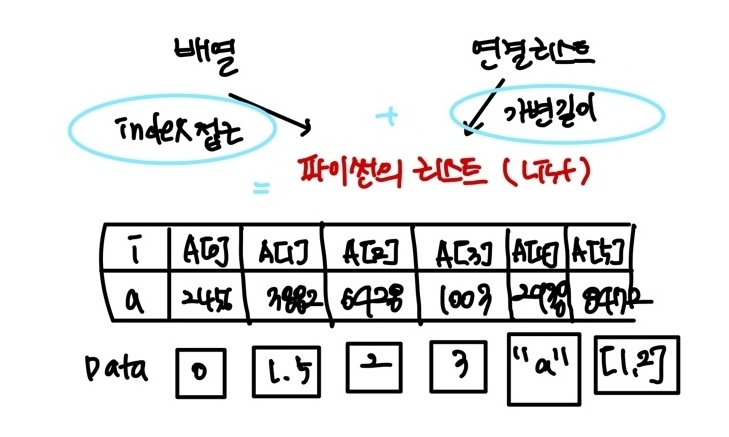 배열 연결리스트
index접근 + 가변길이
= 파이썬의 리스트 ( )
i A[0] A[1] A[2] A[3] A[4] A[5]
a 2456 3882 6428 1003 8472
Data 0 1.5 2 3 "a" [1,2]